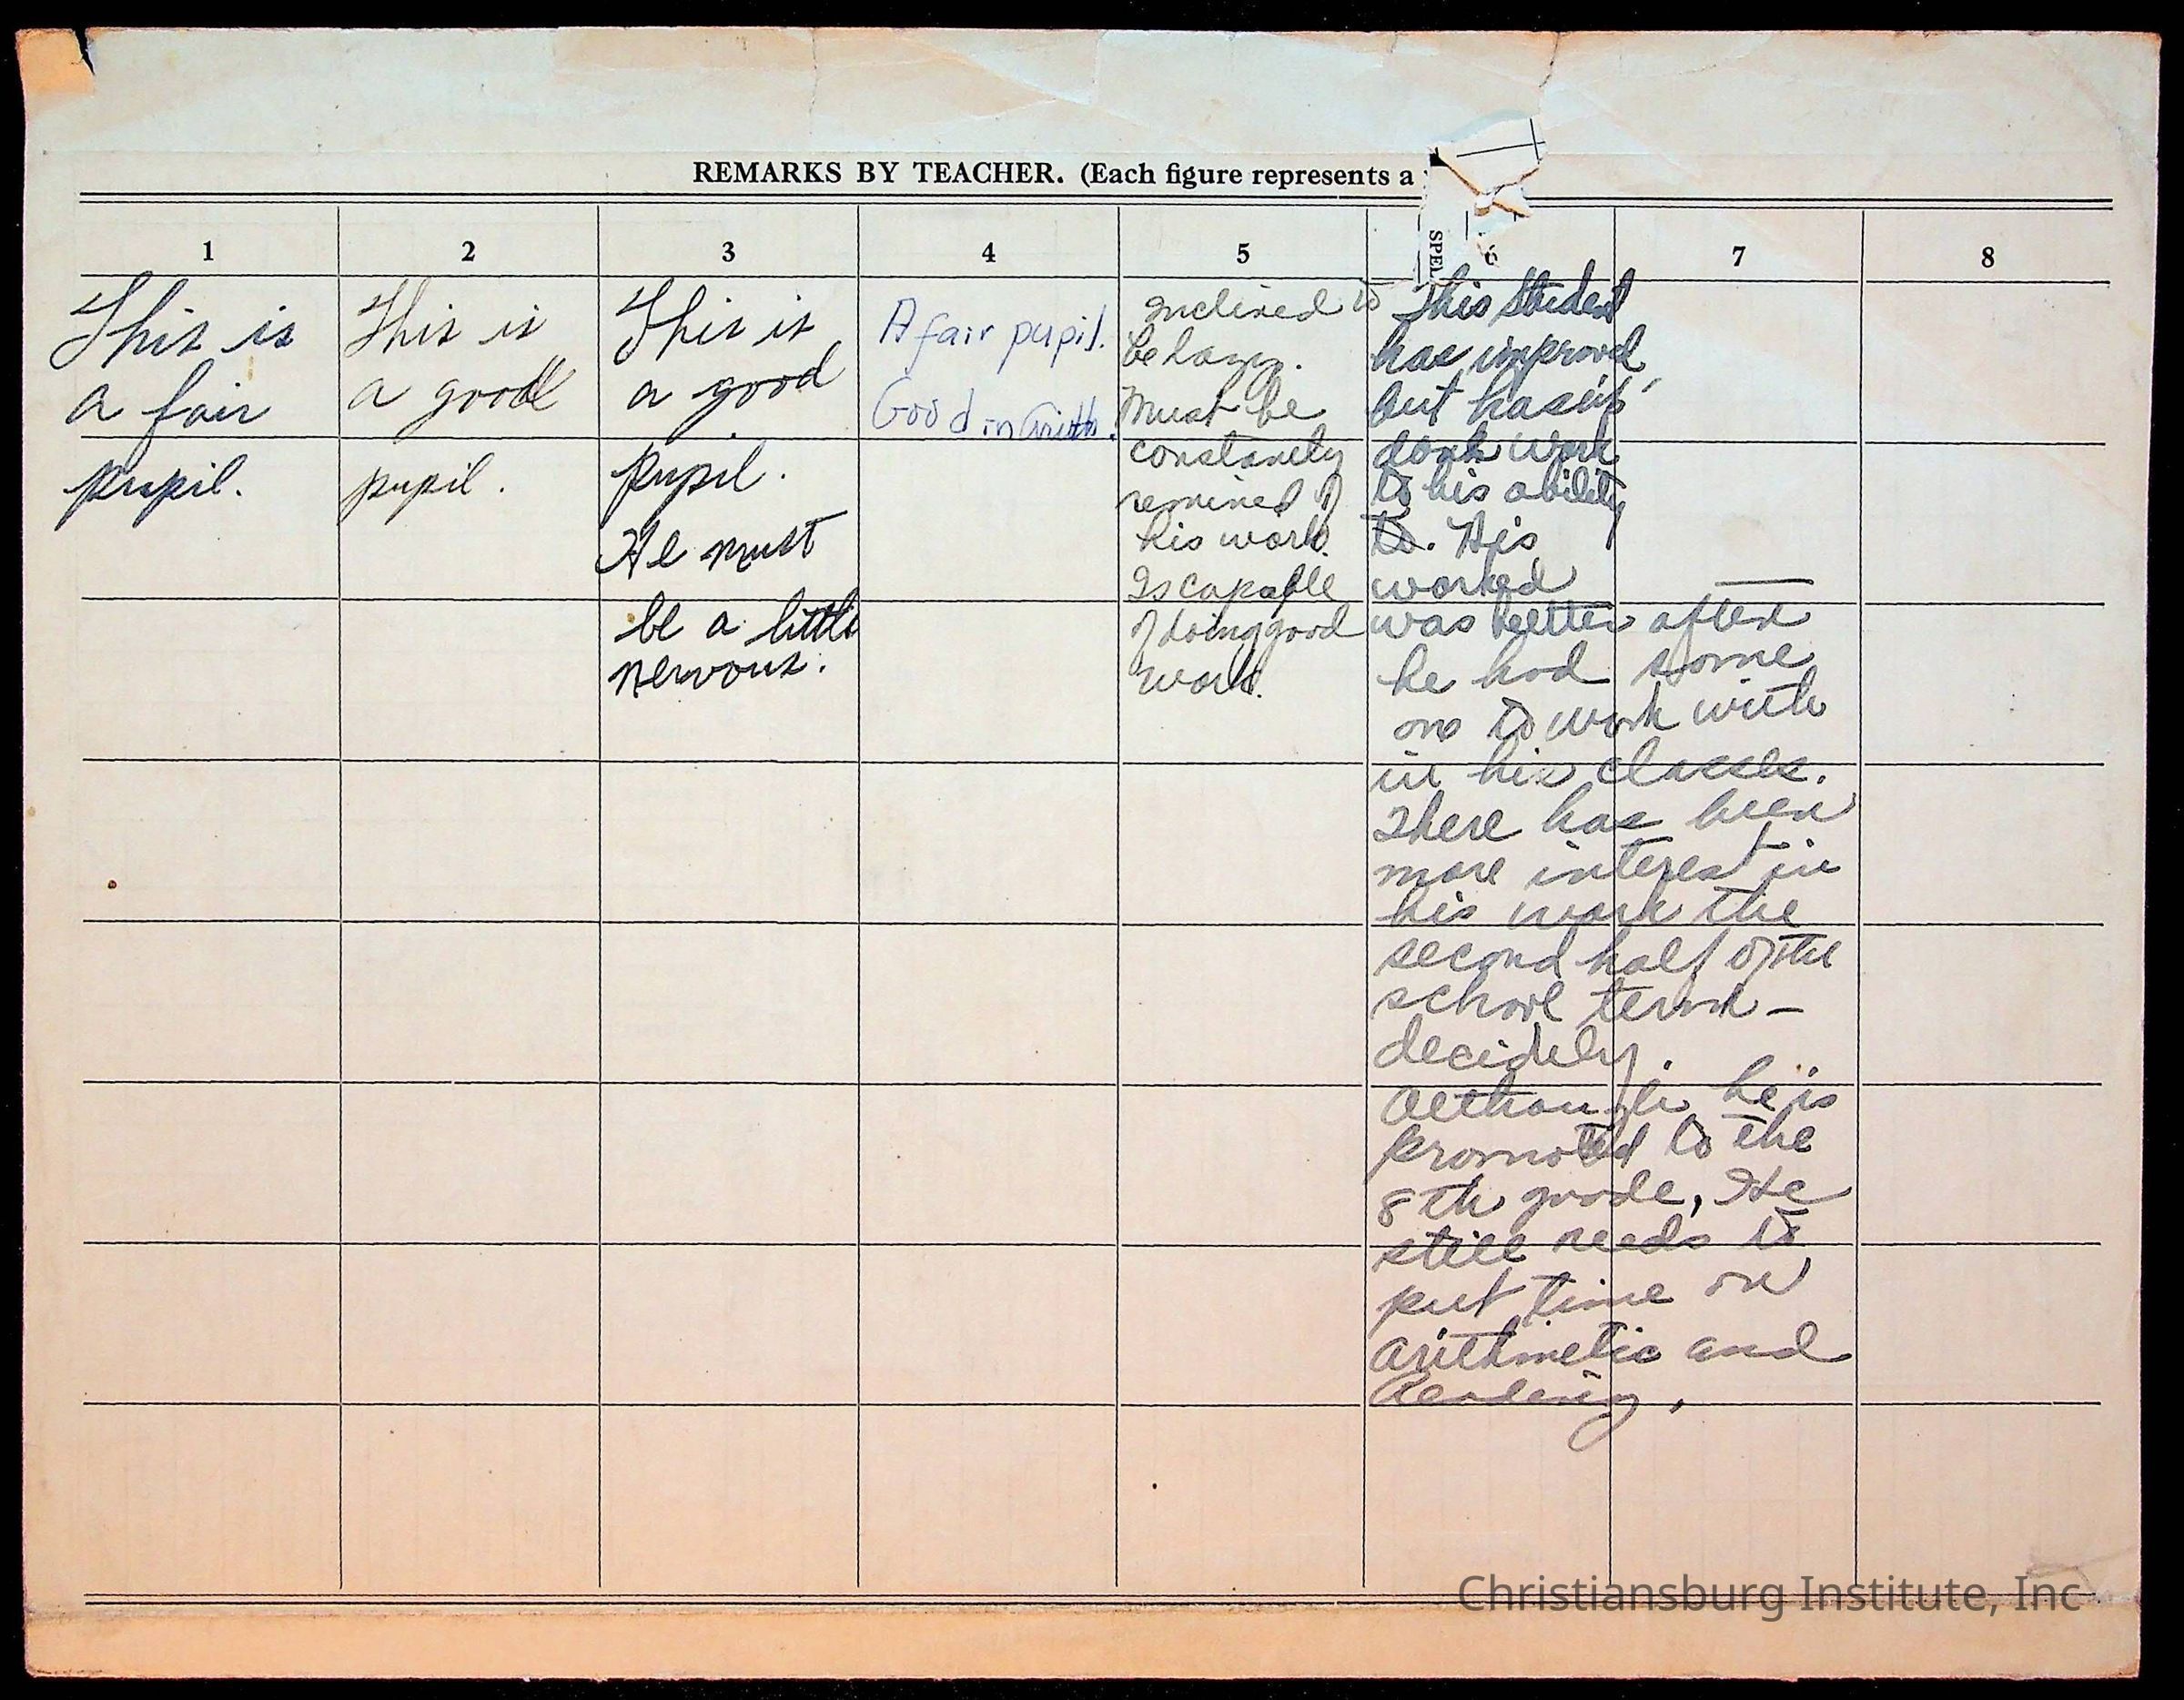 REMARKS BY TEACHER. (Each figure represents a
SPEL
1
2
3
4
5
6
7
8
This is
a fair
pupil.
This is
a good
pupil.
This is
a good
pupil.
He must
be a little
nervous.
A fair pupil.
Good in Arith.
Inclined to
be lazy.
Must be
constantly
remined of
his work.
Is capable
of doing good
work.
This Student
has improved
but hasn't
work
to his ability
to. His
worked
was better after
he had some
one to work with
in his classes.
There has been
more interest in
his work the
second half of the
school term –
decidely.
Although he is
promoted to the
8th grade, He
still needs to
put time on
arithmetic and
Reading.
Christiansburg Institute, Inc